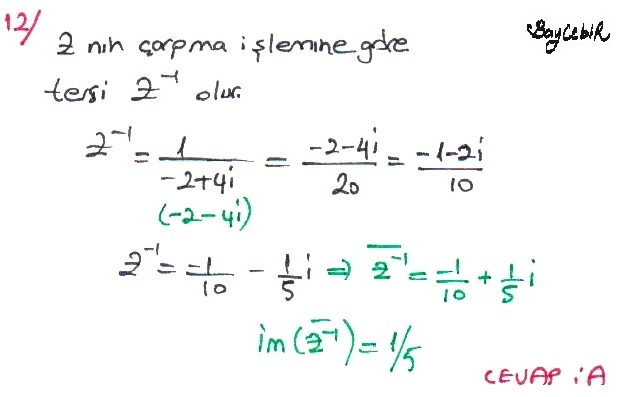 12/ Z nin çarpma işlemine göre
SayCebiR
tersi Z⁻¹ olur.
Z⁻¹ = 1/(-2+4i) = (-2-4i)/20 = (-1-2i)/10
(-2-4i)
Z⁻¹ = -1/10 - 1/5 i ⇒ Z̅⁻̅¹̅ = -1/10 + 1/5 i
im(Z̅⁻̅¹̅) = 1/5
CEVAP : A